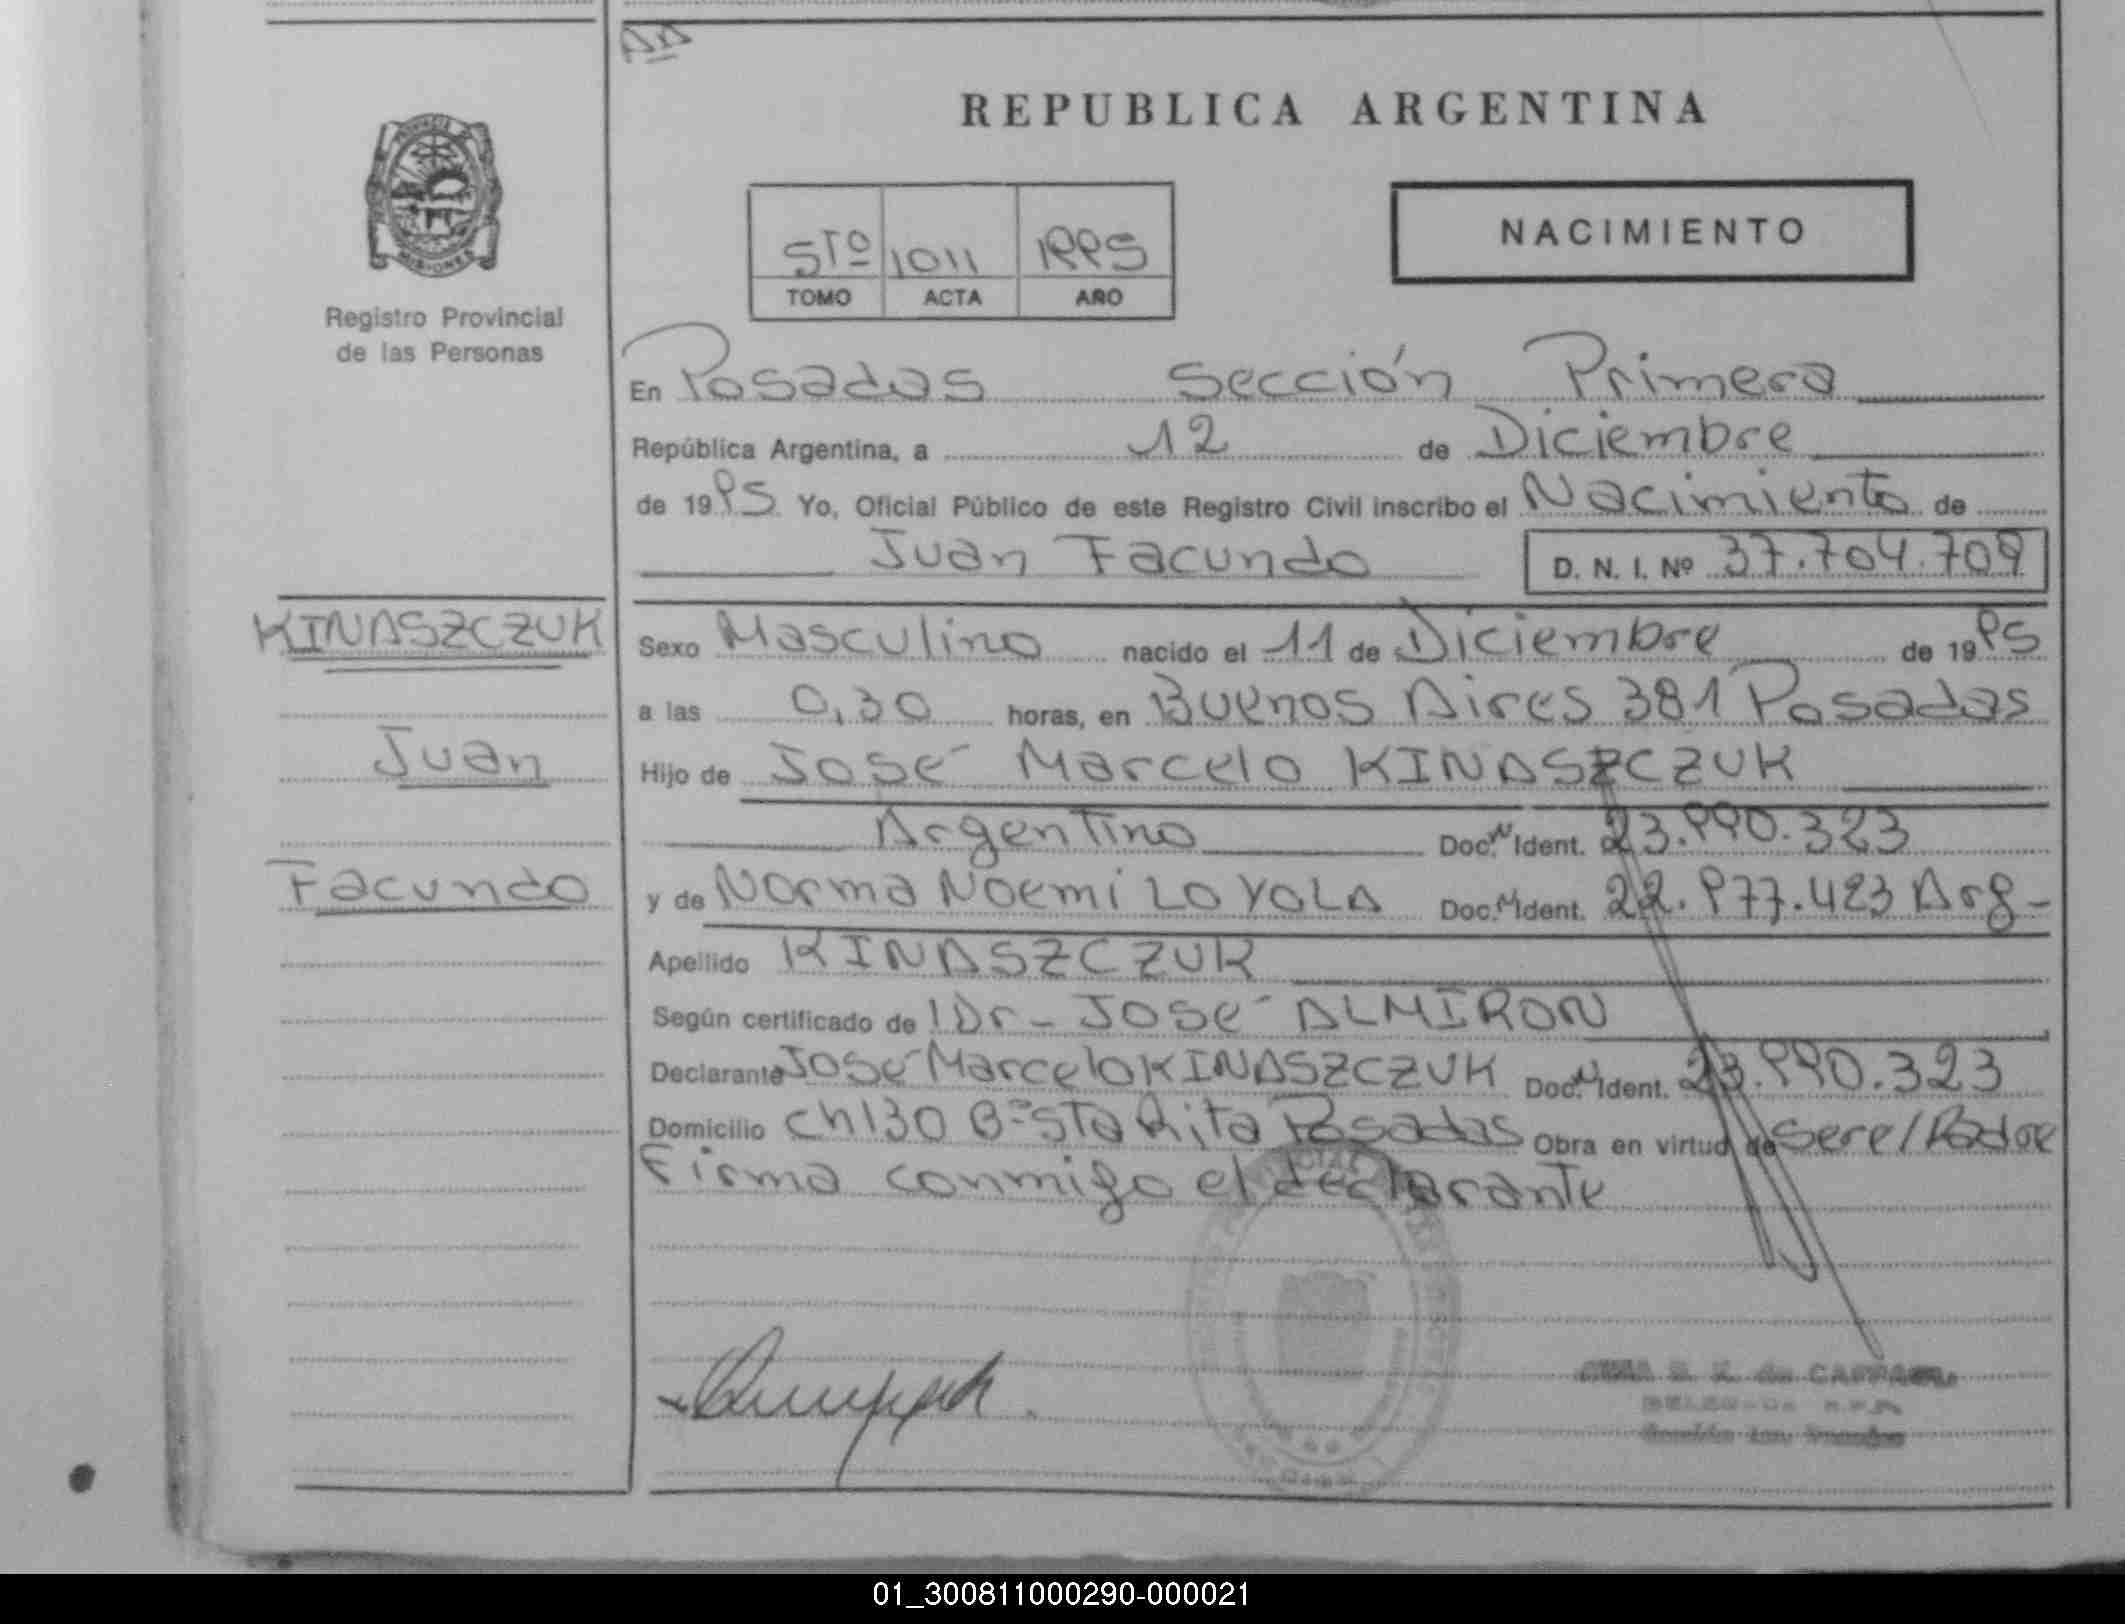 REPUBLICA ARGENTINA
PROVINCIA DE
MISIONES
Registro Provincial
de las Personas
NACIMIENTO
5TO 1011 1995
TOMO ACTA AÑO
En Posadas Sección Primera
República Argentina, a 12 de Diciembre
de 1995 Yo, Oficial Público de este Registro Civil inscribo el Nacimiento de
Juan Facundo D. N. I. Nº 37.704.709
KINASZCZUK
Juan
Facundo
Sexo Masculino nacido el 11 de Diciembre de 1995
a las 0,30 horas, en Buenos Aires 381 Posadas
Hijo de José Marcelo KINASZCZUK
Argentino Doc. N Ident. 23.990.323
y de Norma Noemi LOYOLA Doc. N Ident. 22.977.423 Arg-
Apellido KINASZCZUK
Según certificado de Dr- José ALMIRON
Declarante José Marcelo KINASZCZUK Doc. N Ident. 23.990.323
Domicilio ch130 Bº Sta Rita Posadas Obra en virtud de ser el Padre
Firma conmigo el declarante
S. K. de
01_300811000290-000021